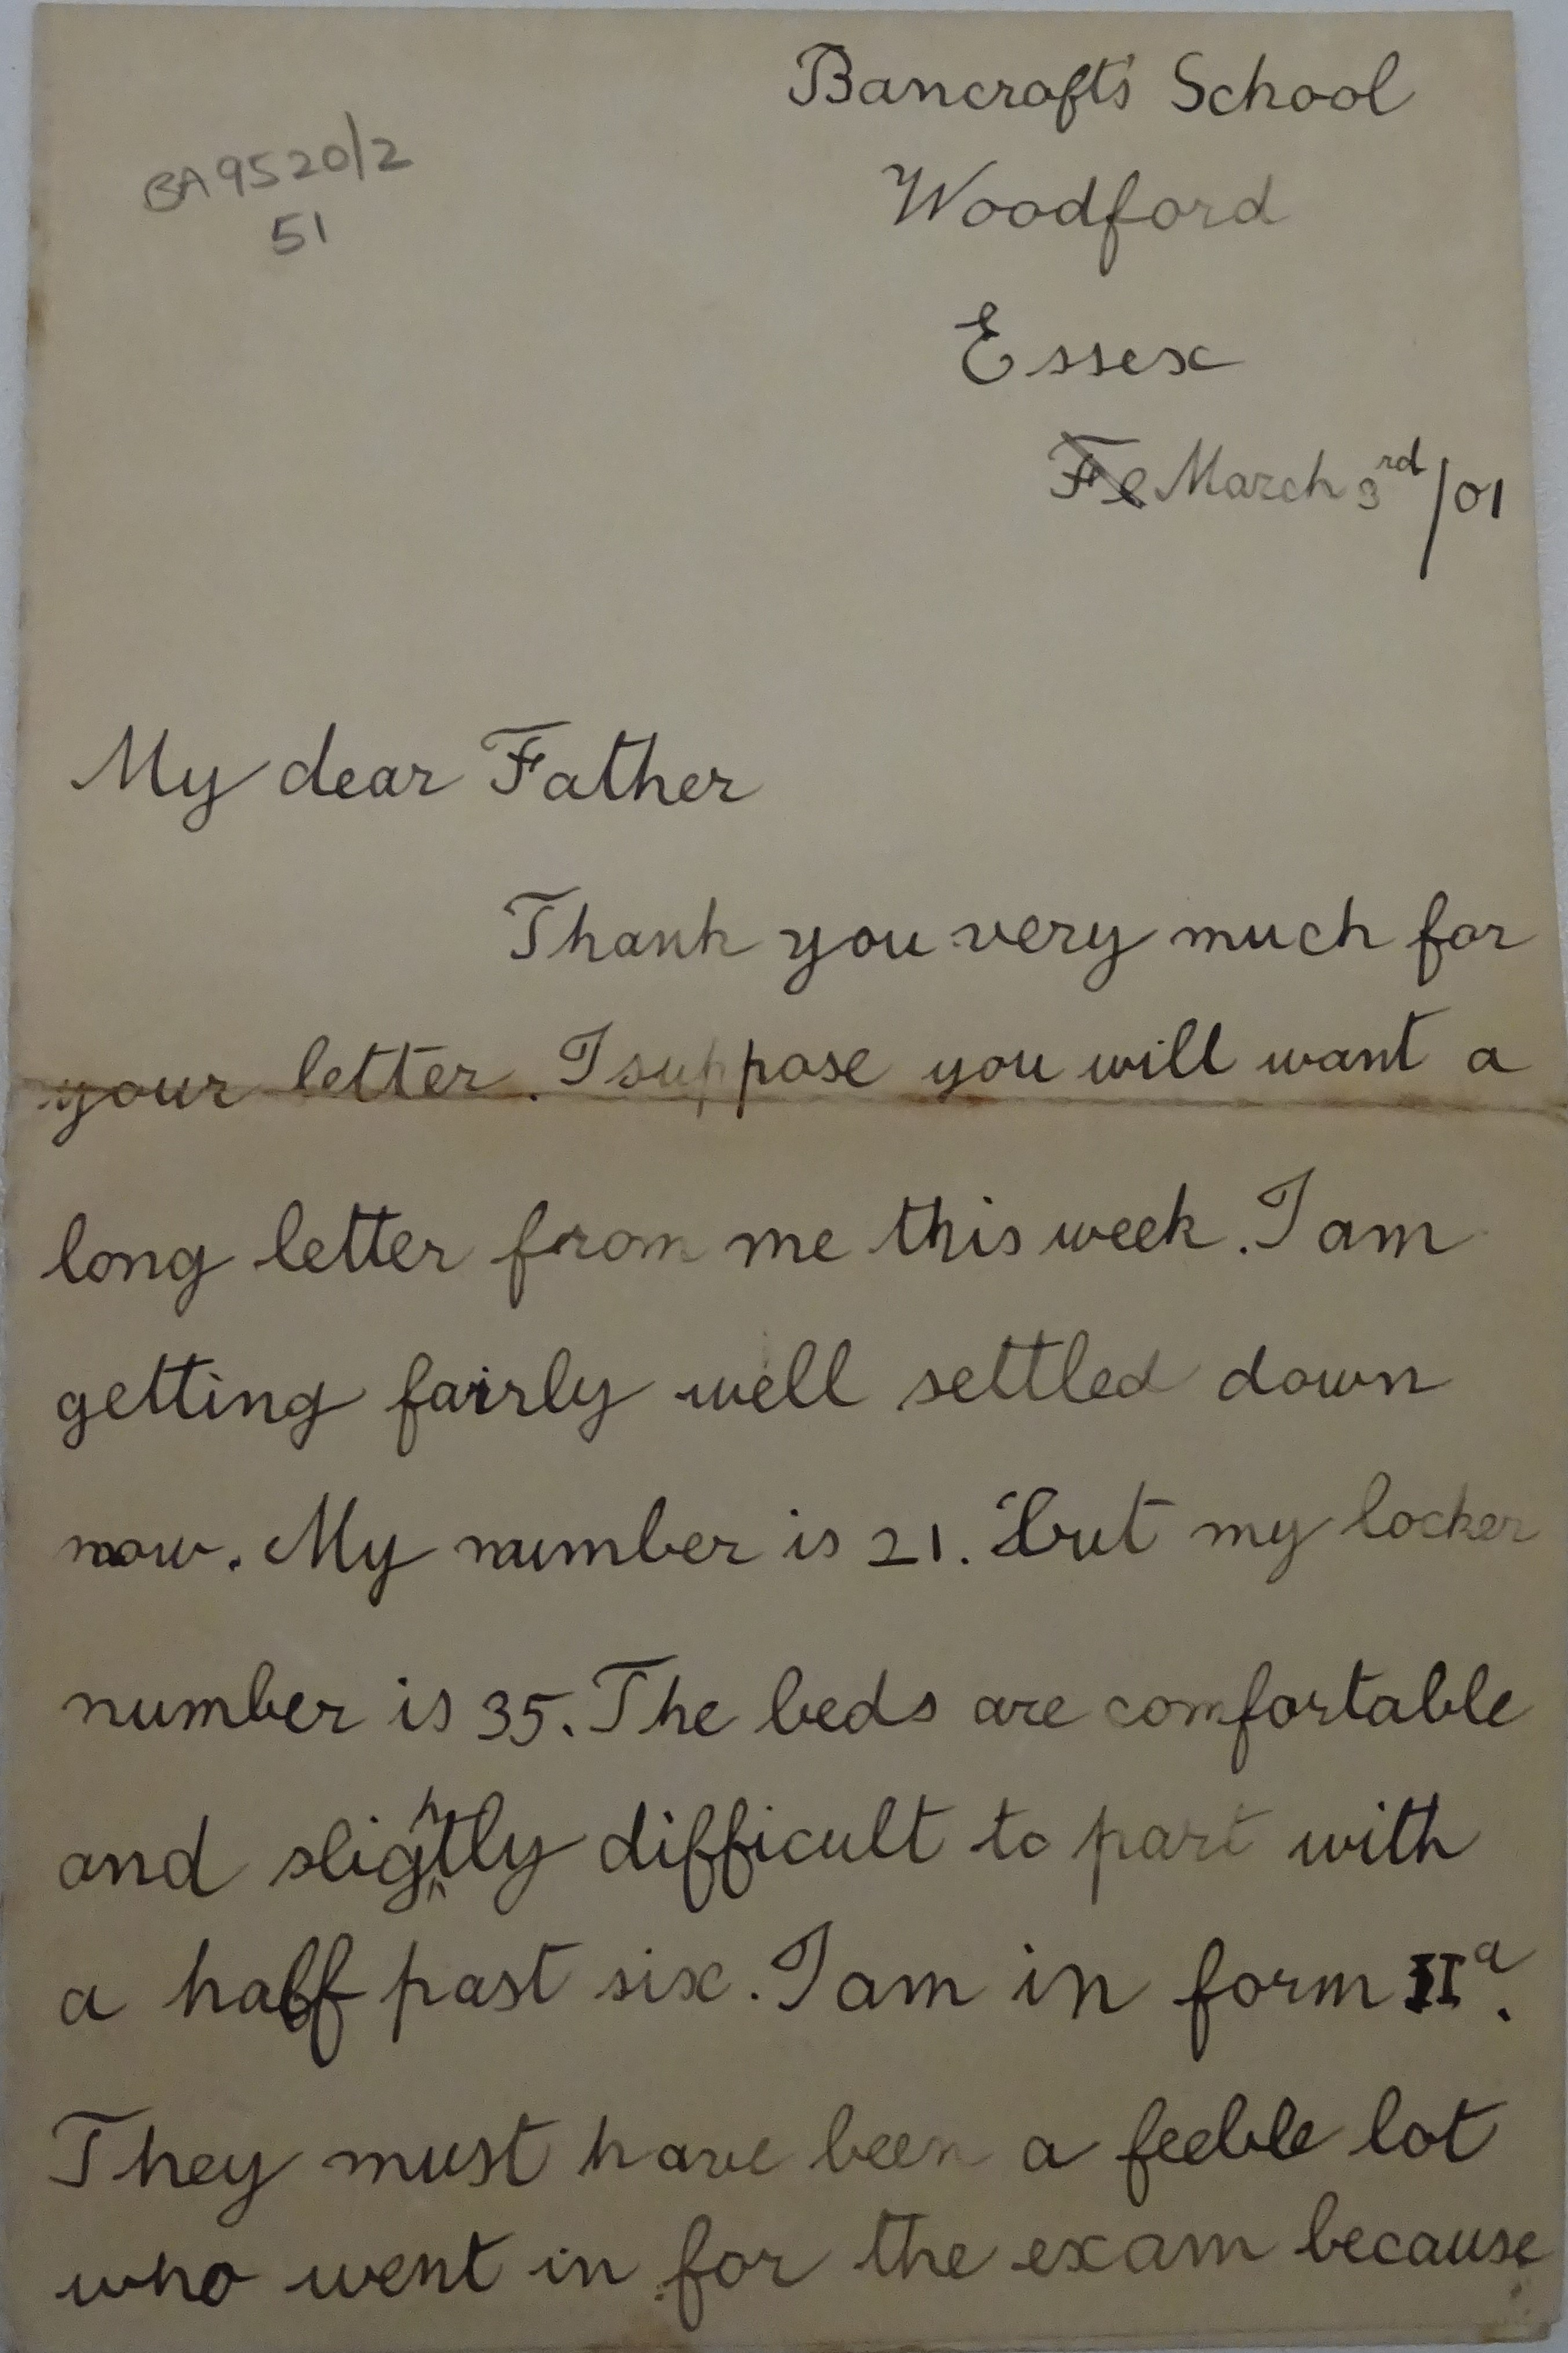 Bancroft's School
BA9520/2
51
Woodford
Essex
Fe March 3rd/01
My dear Father
Thank you very much for
your letter. I suppose you will want a
long letter from me this week. I am
getting fairly well settled down
now. My number is 21. But my locker
number is 35. The beds are comfortable
and slightly difficult to part with
a half past six. I am in form IIa.
They must have been a feeble lot
who went in for the exam because